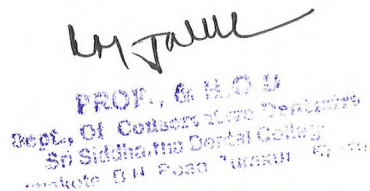 PROF., & H.O.D
Dept., Of Conservative Dentistry
Sri Siddhartha Dental College
B H Road Tumkur